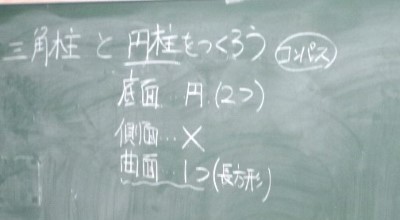 三角柱と円柱をつくろう コンパス
底面‥円(2つ)
側面…×
曲面‥1つ(長方形)